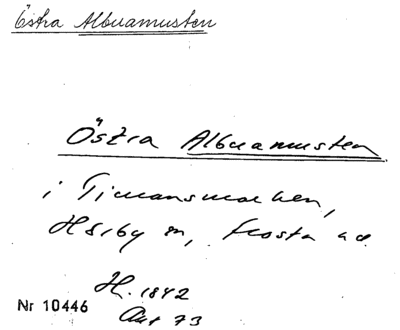 Östra Albuamusten
Östra Albuamusten
i Timansmarken,
Hörby sn, Frosta hd.
H. 1842
Akt 73
Nr 10446